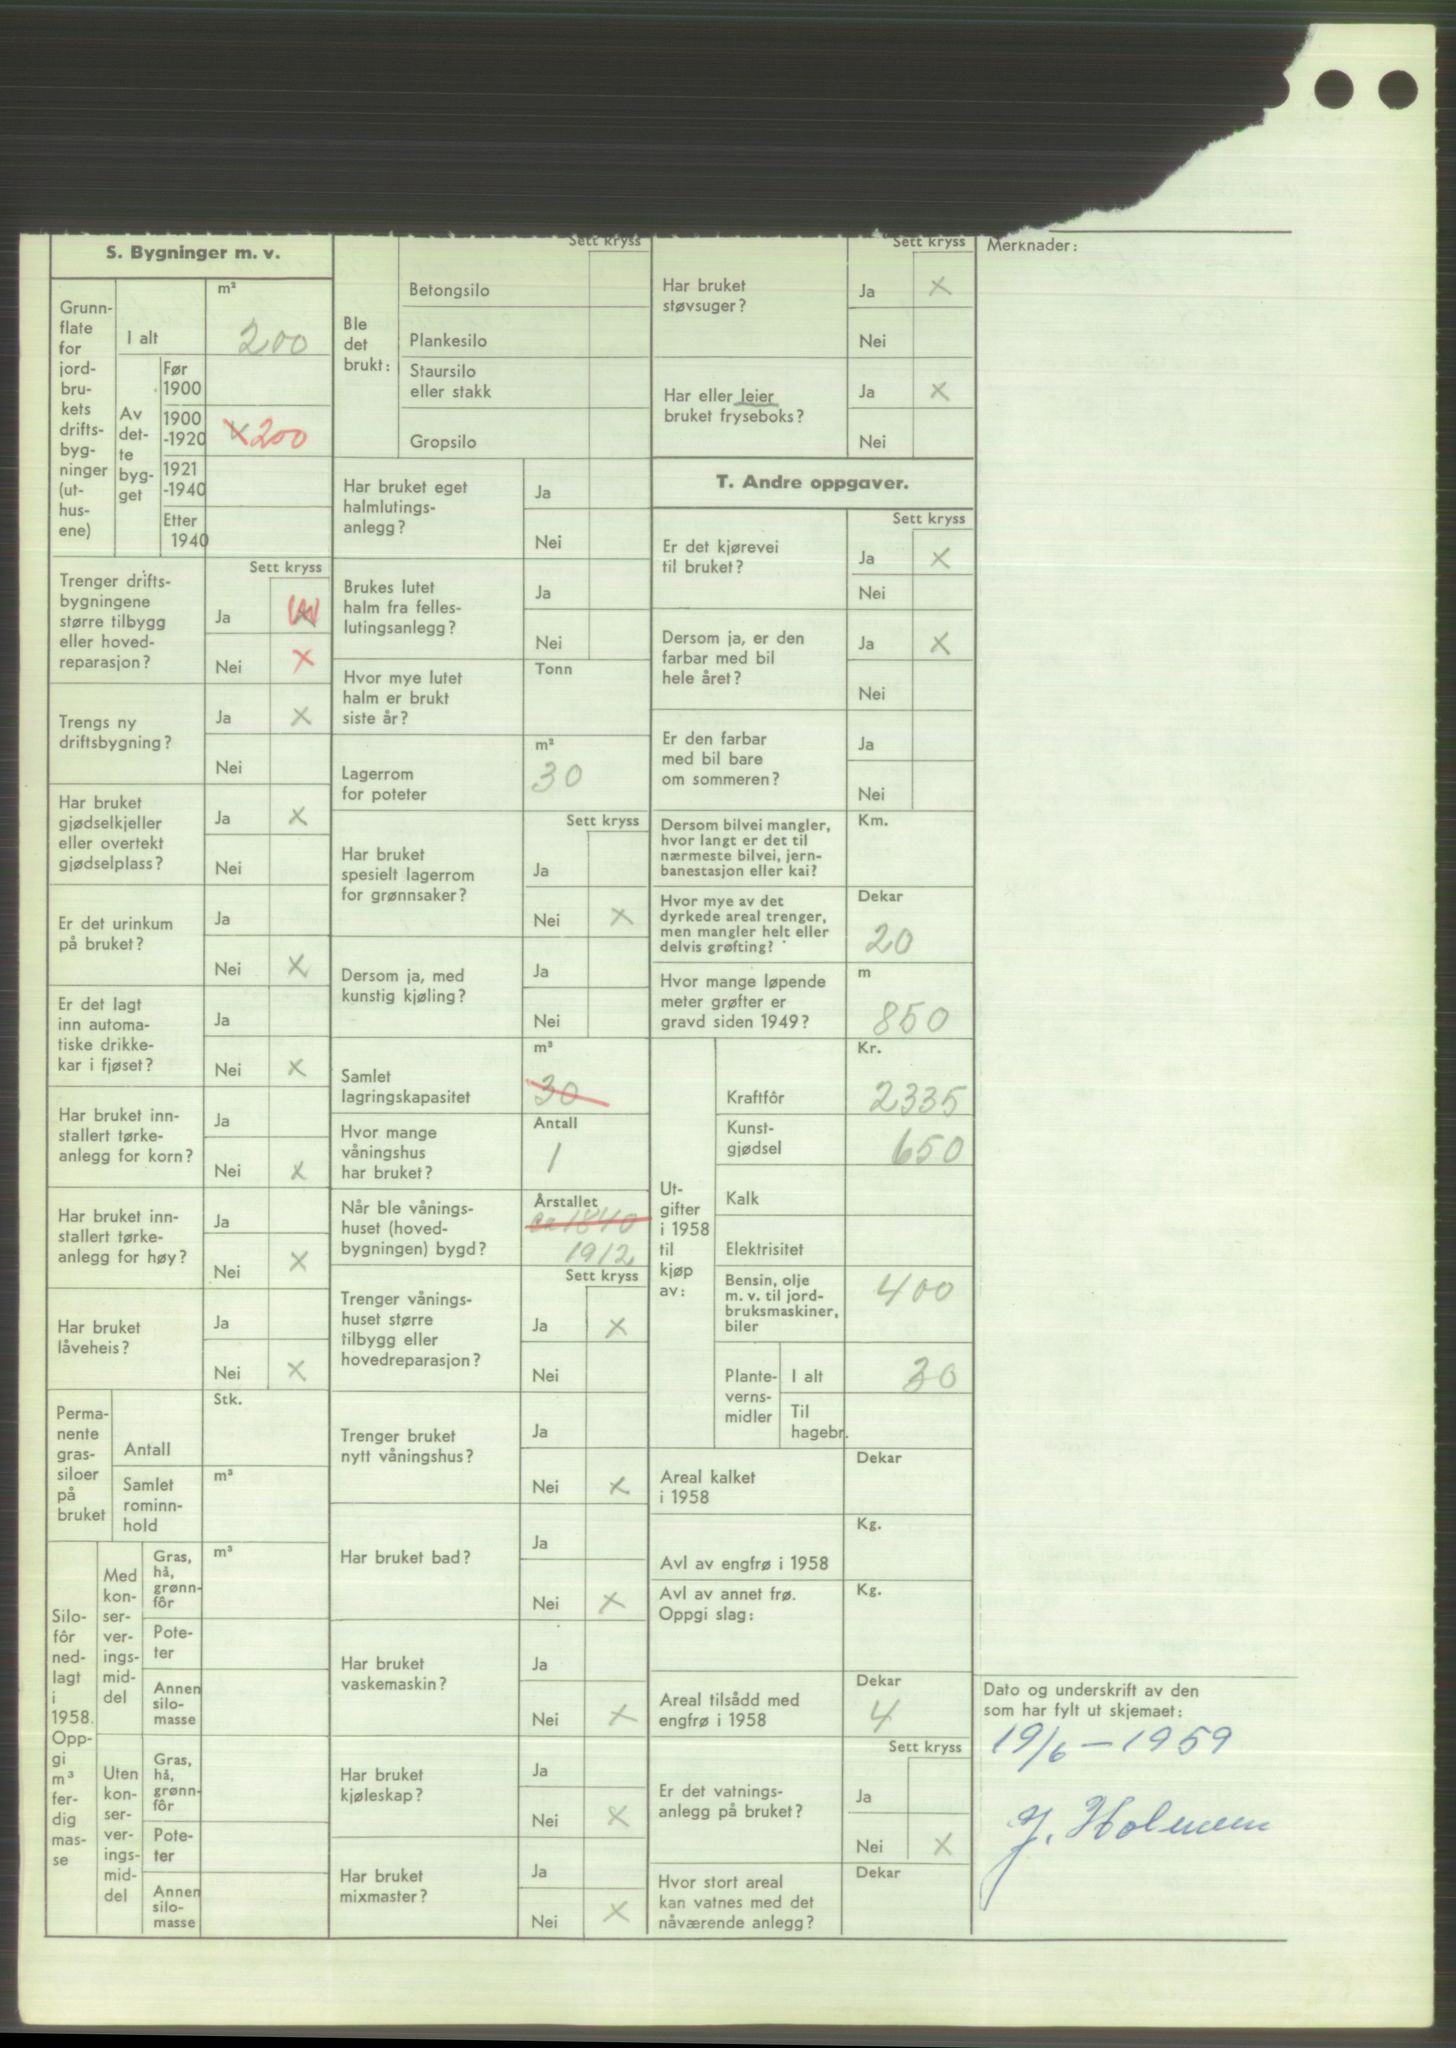 S. Bygninger m. v.
Grunn-
flate
for
jord-
bru-
kets
drifts-
byg-
ninger
(ut-
hus-
ene)
m²
I alt
200
Av
det-
te
byg-
get
Før
1900
1900
-1920
x 200
1921
-1940
Etter
1940
Sett kryss
Trenger drifts-
bygningene
større tilbygg
eller hoved-
reparasjon?
Ja
x
Nei x
Trengs ny
driftsbygning?
Ja x
Nei
Har bruket
gjødselkjeller
eller overtekt
gjødselplass?
Ja x
Nei
Er det urinkum
på bruket?
Ja
Nei x
Er det lagt
inn automa-
tiske drikke-
kar i fjøset?
Ja
Nei x
Har bruket inn-
stallert tørke-
anlegg for korn?
Ja
Nei x
Har bruket inn-
stallert tørke-
anlegg for høy?
Ja
Nei x
Har bruket
låveheis?
Ja
Nei x
Perma-
nente
gras-
siloer
på
bruket
Stk.
Antall
m³
Samlet
rominn-
hold
Silo-
fôr
ned-
lagt
i
1958.
Opp-
gi
m³
fer-
dig
mas-
se
Med
kon-
ser-
ver-
ings-
mid-
del
m³
Gras,
hå,
grønn-
fôr
Pote-
ter
Annen
silo-
masse
Uten
kon-
ser-
ver-
ings-
mid-
del
Gras,
hå,
grønn-
fôr
Pote-
ter
Annen
silo-
masse
Sett kryss
Ble
det
brukt:
Betongsilo
Plankesilo
Staursilo
eller stakk
Gropsilo
Har bruket eget
halmlutings-
anlegg?
Ja
Nei
Brukes lutet
halm fra felles-
lutingsanlegg?
Ja
Nei
Hvor mye lutet
halm er brukt
siste år?
Tonn
Lagerrom
for poteter
m²
30
Sett kryss
Har bruket
spesielt lagerrom
for grønnsaker?
Ja
Nei x
Dersom ja, med
kunstig kjøling?
Ja
Nei
Samlet
lagringskapasitet
m³
30
Hvor mange
våningshus
har bruket?
Antall
1
Når ble vånings-
huset (hoved-
bygningen) bygd?
Årstallet
ca 1840
1912
Sett kryss
Trenger vånings-
huset større
tilbygg eller
hovedreparasjon?
Ja x
Nei
Trenger bruket
nytt våningshus?
Ja
Nei x
Har bruket bad?
Ja
Nei x
Har bruket
vaskemaskin?
Ja
Nei x
Har bruket
kjøleskap?
Ja
Nei x
Har bruket
mixmaster?
Ja
Nei x
Sett kryss
Har bruket
støvsuger?
Ja x
Nei
Har eller leier
bruket fryseboks?
Ja x
Nei
T. Andre oppgaver.
Sett kryss
Er det kjørevei
til bruket?
Ja x
Nei
Dersom ja, er den
farbar med bil
hele året?
Ja x
Nei
Er den farbar
med bil bare
om sommeren?
Ja
Nei
Dersom bilvei mangler,
hvor langt er det til
nærmeste bilvei, jern-
banestasjon eller kai?
Km.
Hvor mye av det
dyrkede areal trenger,
men mangler helt eller
delvis grøfting?
Dekar
20
Hvor mange løpende
meter grøfter er
gravd siden 1949?
m
850
Ut-
gifter
i 1958
til
kjøp
av:
Kr.
Kraftfôr 2335
Kunst-
gjødsel 650
Kalk
Elektrisitet
Bensin, olje
m. v. til jord-
bruksmaskiner,
biler
400
Plante-
verns-
midler
I alt 30
Til
hagebr.
Areal kalket
i 1958
Dekar
Avl av engfrø i 1958
Kg.
Avl av annet frø.
Oppgi slag:
Kg.
Areal tilsådd med
engfrø i 1958
Dekar
4
Sett kryss
Er det vatnings-
anlegg på bruket?
Ja
Nei x
Hvor stort areal
kan vatnes med det
nåværende anlegg?
Dekar
Merknader:
Dato og underskrift av den
som har fylt ut skjemaet:
19/6 - 1959
J. Holmen